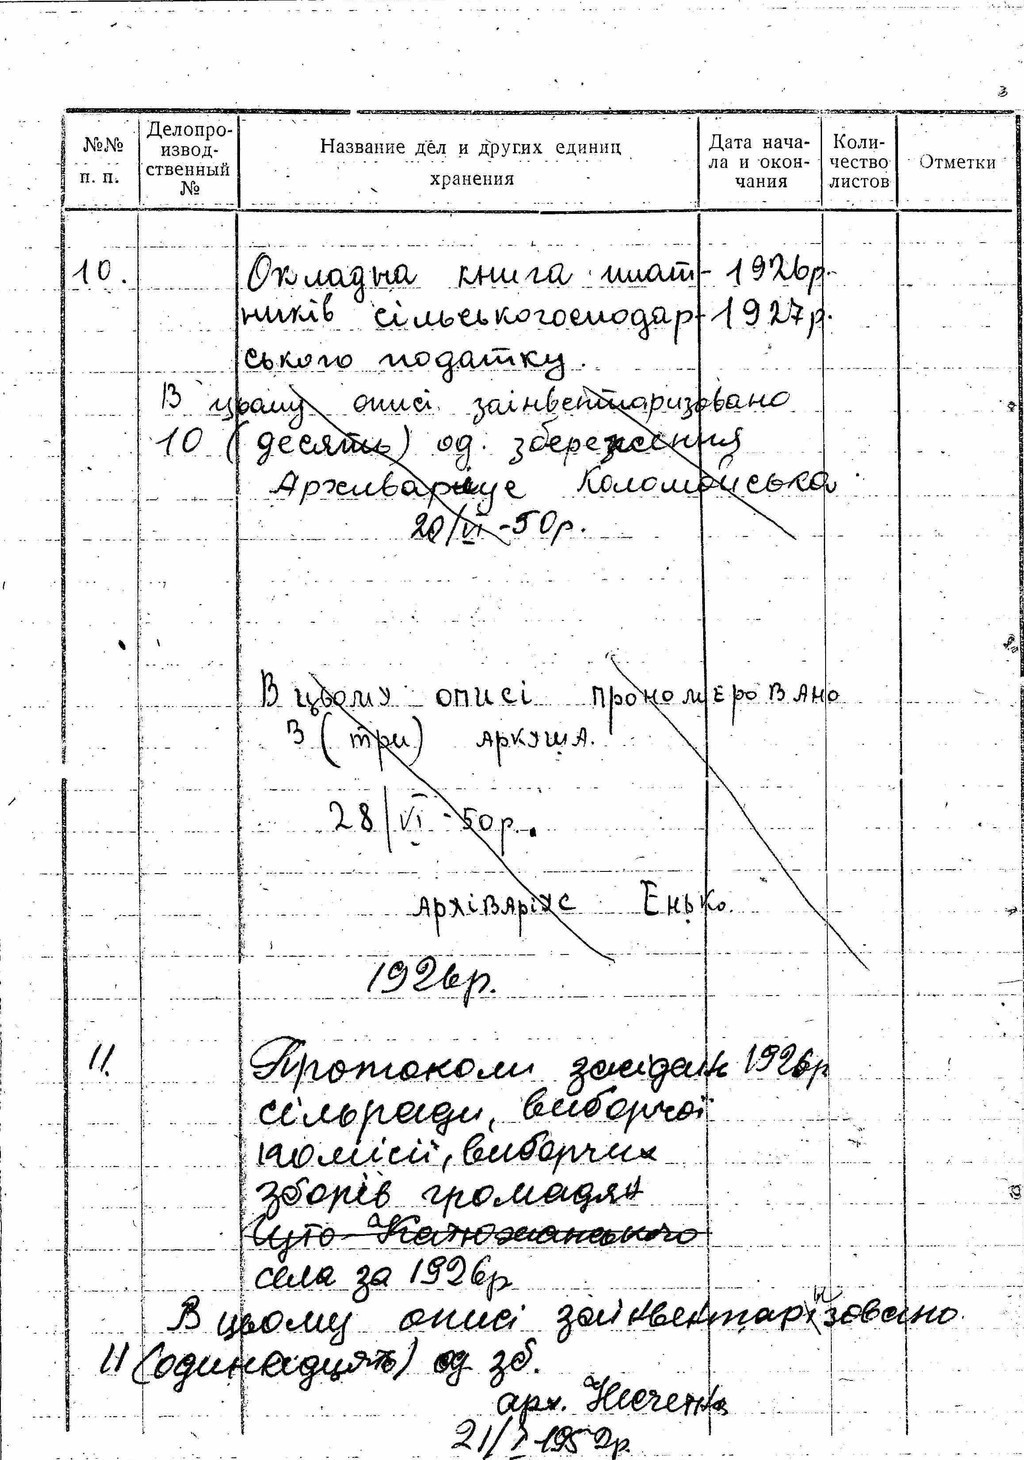 3
№№ п. п.
Делопро-
извод-
ственный
№
Название дел и других единиц
хранения
Дата нача-
ла и окон-
чания
Коли-
чество
листов
Отметки
10. Окладна книга плат- 1926р.-
ників сільськогосподар- 1927р.
ського податку.
В цьому описі заінвентаризовано
10 (десять) од. збереження
Архіваріус Коломойська
20/VI-50р.
В цьому описі прономеровано
3 (три) аркуша.
28/VI-50р.
Архіваріус Енько.
1926р.
11. Протоколи засідань 1926р
сільради, виборчої
комісії, виборчих
зборів громадян
села за 1926р
В цьому описі заінвентаризовано
11 (одинадцять) од зб.
арх.
21/I-1952р.